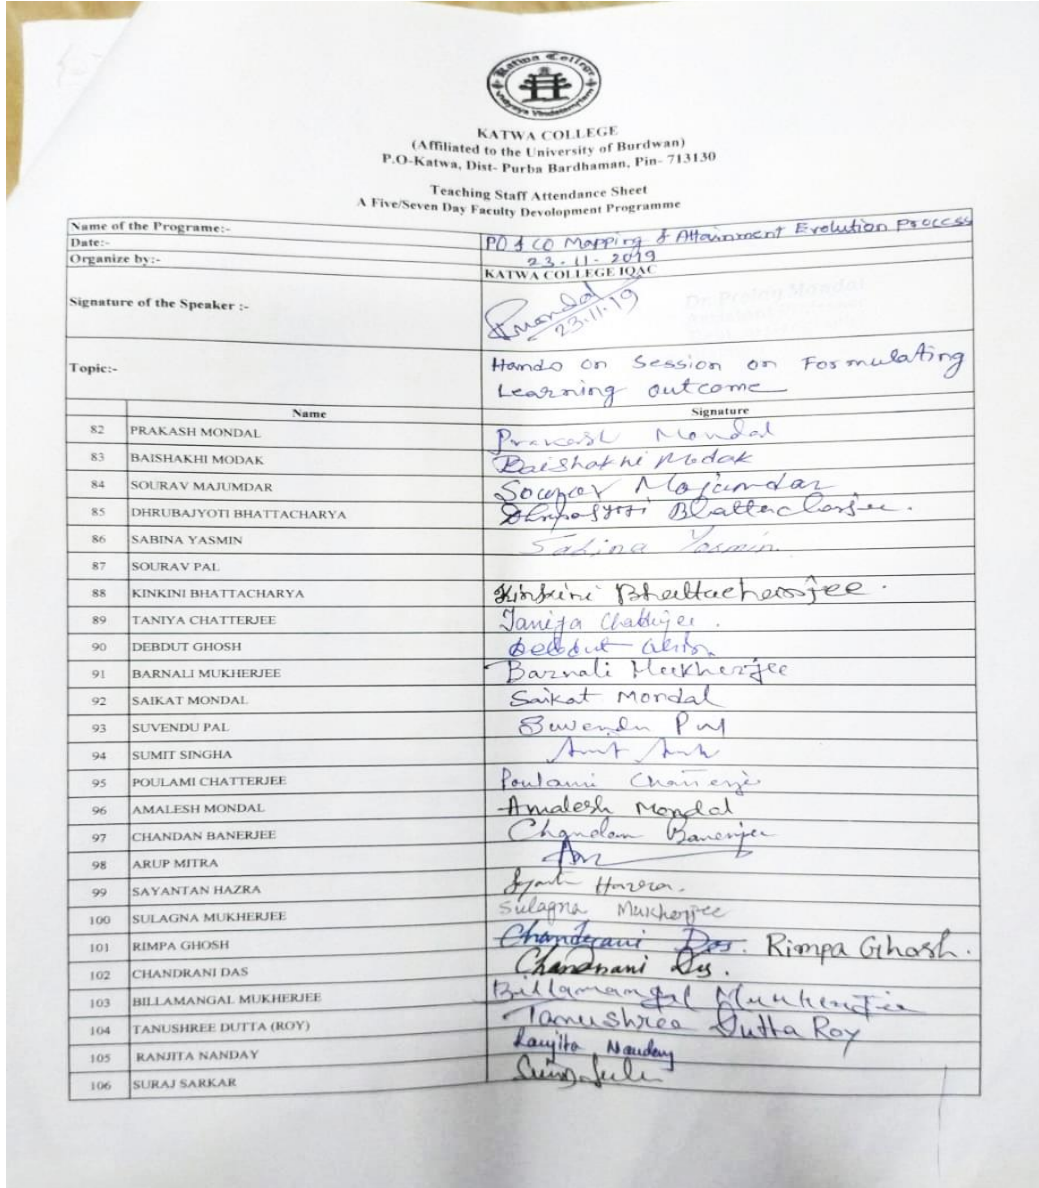 Katwa College
Vidyaya Vindateamritam
KATWA COLLEGE
(Affiliated to the University of Burdwan)
P.O-Katwa, Dist- Purba Bardhaman, Pin- 713130
Teaching Staff Attendance Sheet
A Five/Seven Day Faculty Devolopment Programme
Name of the Programe:- PO & CO Mapping & Attainment Evolution Process
Date:- 23-11-2019
Organize by:- KATWA COLLEGE IQAC
Signature of the Speaker :- Pmondal
23.11.19
Dr. Proloy Mondal
Topic:- Hands on Session on Formulating
Learning outcome
Name Signature
82 PRAKASH MONDAL Prakash Mondal
83 BAISHAKHI MODAK Baishakhi Modak
84 SOURAV MAJUMDAR Sourav Majumdar
85 DHRUBAJYOTI BHATTACHARYA Dhrubajyoti Bhattacharjee.
86 SABINA YASMIN Sabina Yasmin.
87 SOURAV PAL
88 KINKINI BHATTACHARYA Kinkini Bhattacharjee.
89 TANIYA CHATTERJEE Taniya Chatterjee.
90 DEBDUT GHOSH Debdut Ghosh
91 BARNALI MUKHERJEE Barnali Mukherjee
92 SAIKAT MONDAL Saikat Mondal
93 SUVENDU PAL Suvendu Pal
94 SUMIT SINGHA
95 POULAMI CHATTERJEE Poulami Chatterjee
96 AMALESH MONDAL Amalesh Mondal
97 CHANDAN BANERJEE Chandan Banerjee
98 ARUP MITRA
99 SAYANTAN HAZRA Hazra.
100 SULAGNA MUKHERJEE Sulagna Mukherjee
101 RIMPA GHOSH Chandrani Das. Rimpa Ghosh.
102 CHANDRANI DAS Chandrani Das.
103 BILLAMANGAL MUKHERJEE Billamangal Mukherjee
104 TANUSHREE DUTTA (ROY) Tanushree Dutta Roy
105 RANJITA NANDAY Ranjita Nanday
106 SURAJ SARKAR